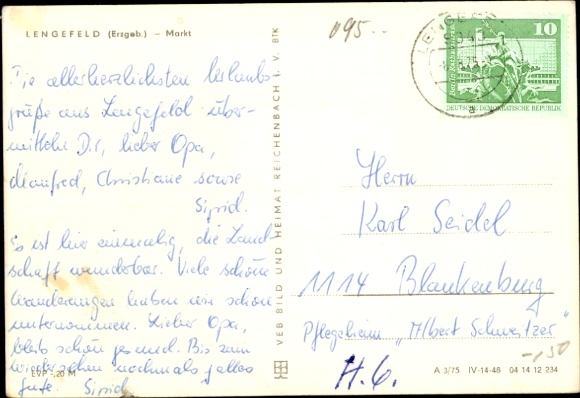 LENGEFELD (Erzgeb.) — Markt
Die allerherzlichsten Urlaubs-
grüße aus Lengefeld über-
mitteln Dir, lieber Opa,
Manfred, Christiane sowie
Sigrid.
Es ist hier einmalig, die Land
schaft wunderbar. Viele schöne
Wanderungen haben wir schon
unternommen. Lieber Opa,
bleib schön gesund. Bis zum
Wiedersehen nochmals alles
Gute. Sigrid
EVP -,20 M
VEB BILD UND HEIMAT REICHENBACH I. V. BTK
095..
LENGEFE
10
DEUTSCHE DEMOKRATISCHE REPUBLIK
Herrn
Karl Seidel
1114 Blankenburg
Pflegeheim "Albert Schweitzer"
H. 6.
-,50
A 3/75 IV-14-48 04 14 12 234